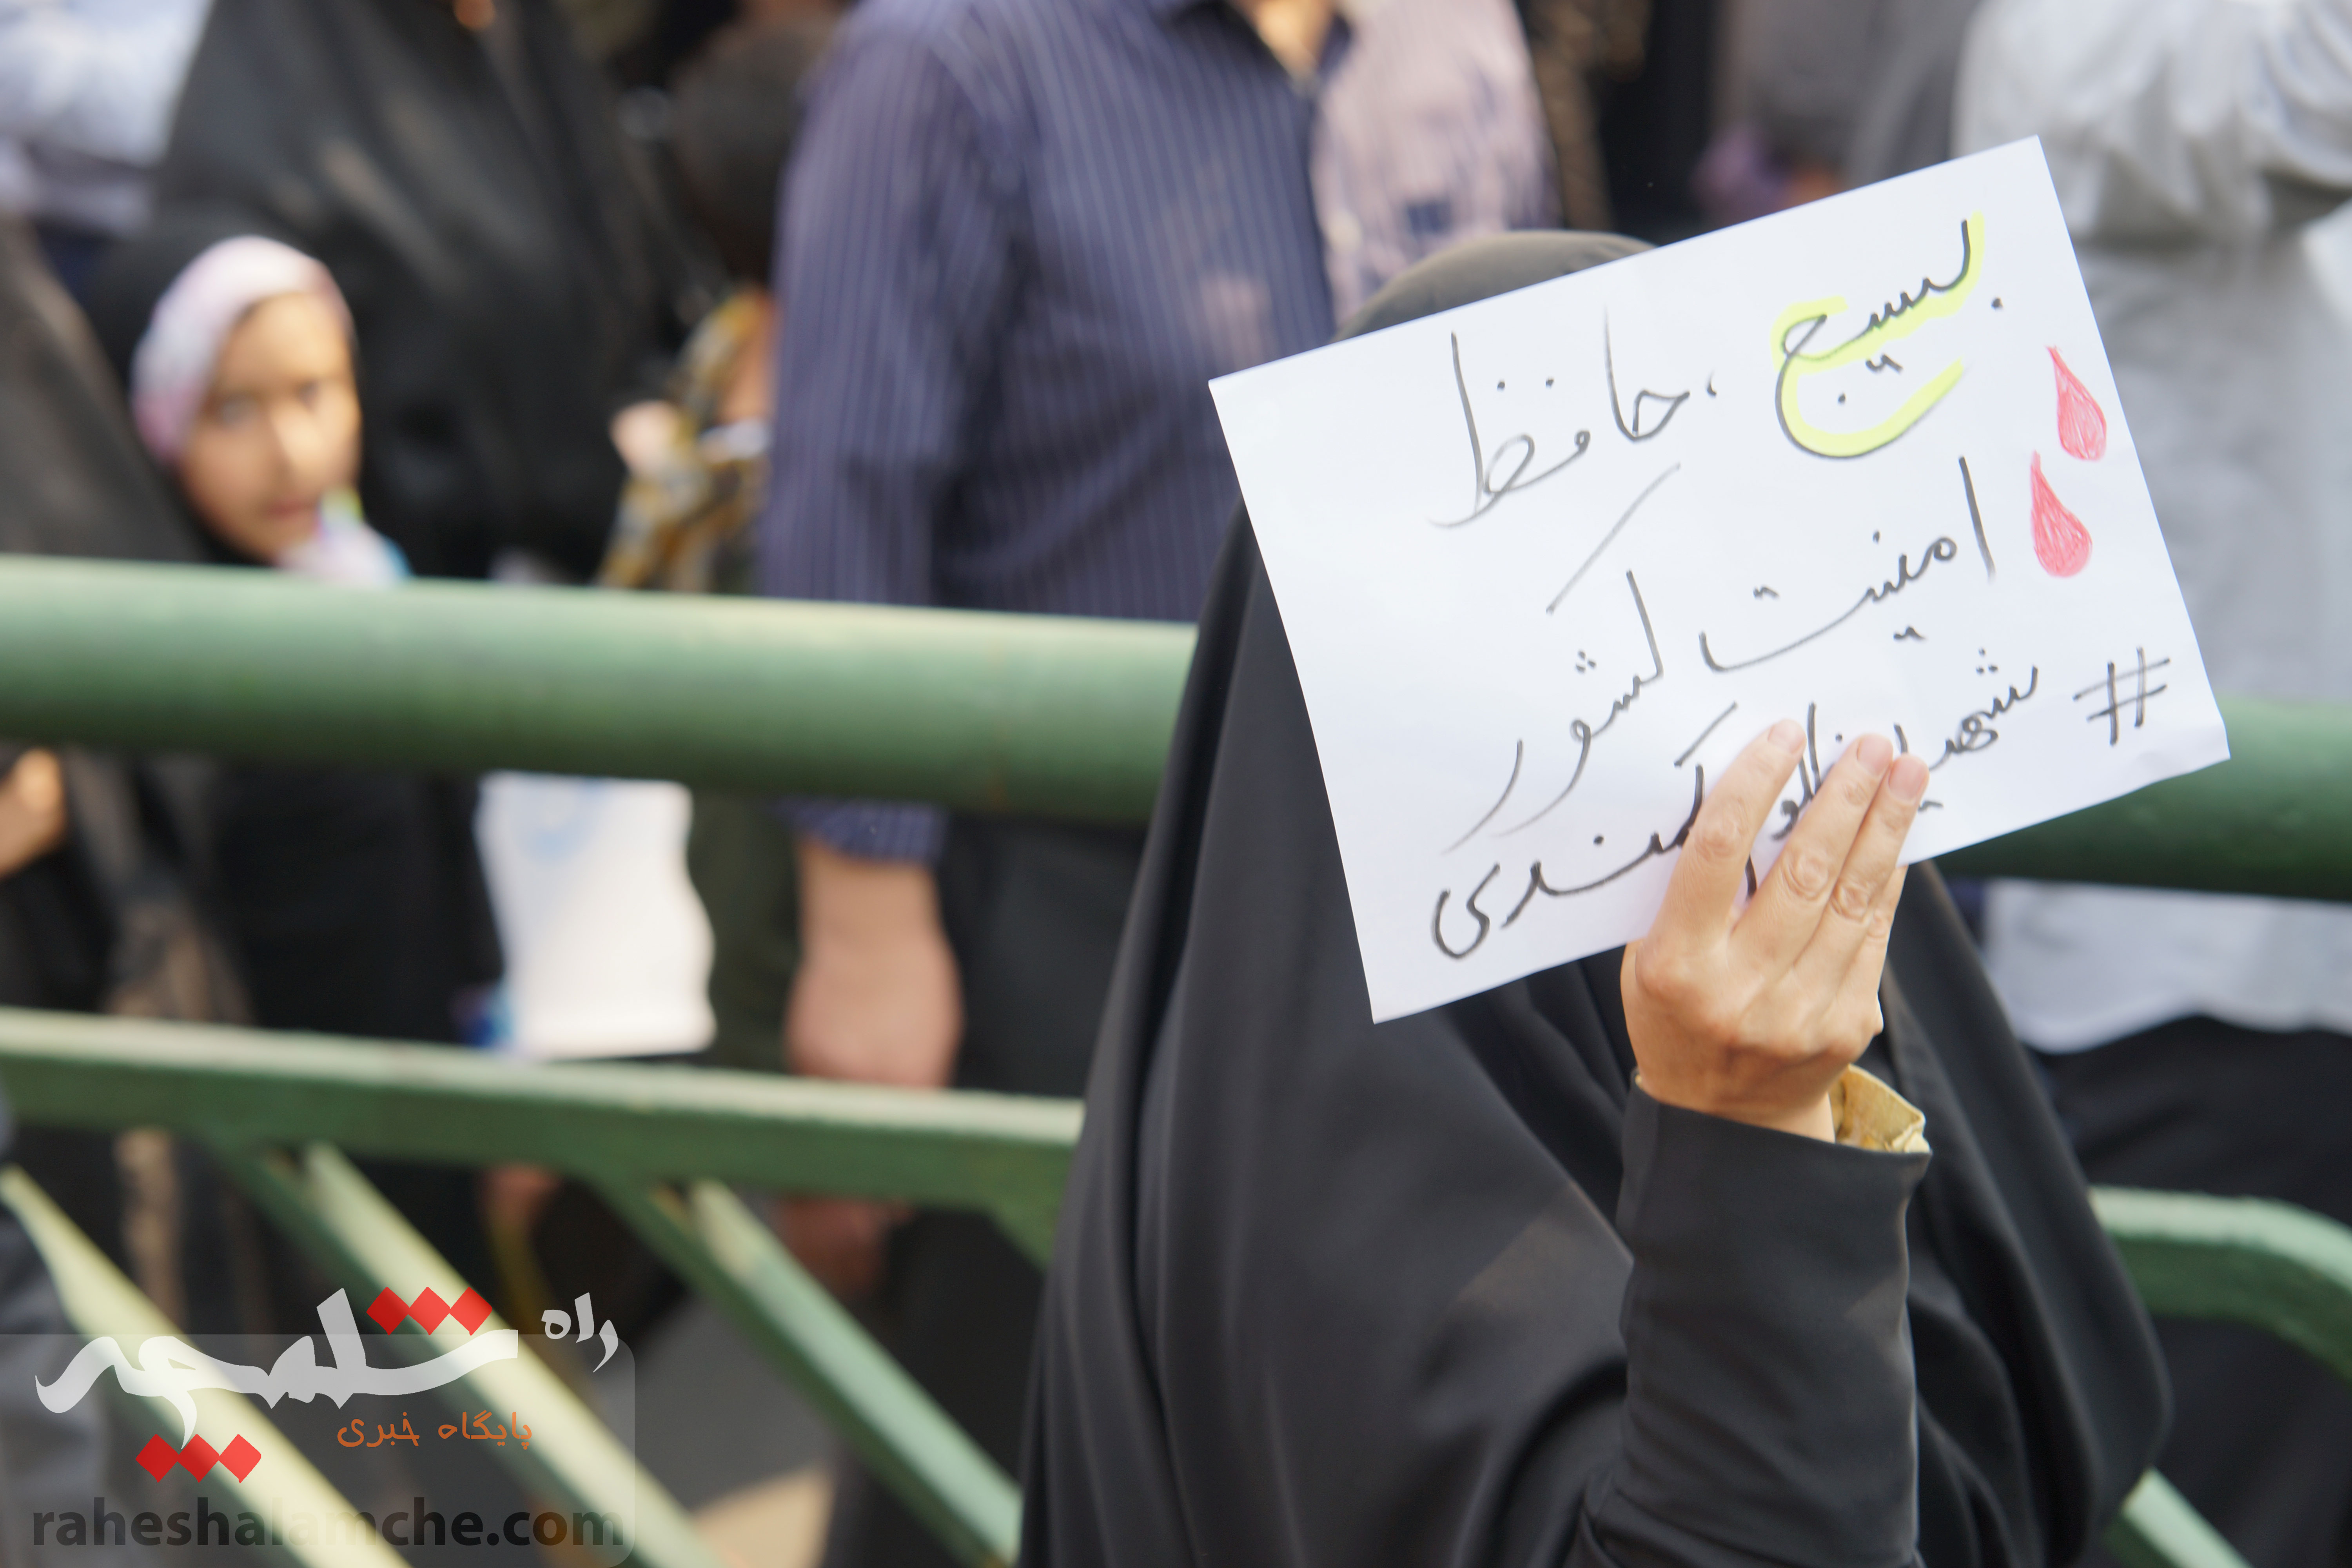 بسیج، حافظ
امنیت کشور
#شهید
راه
شلمچه
پایگاه خبری
raheshalamche.com